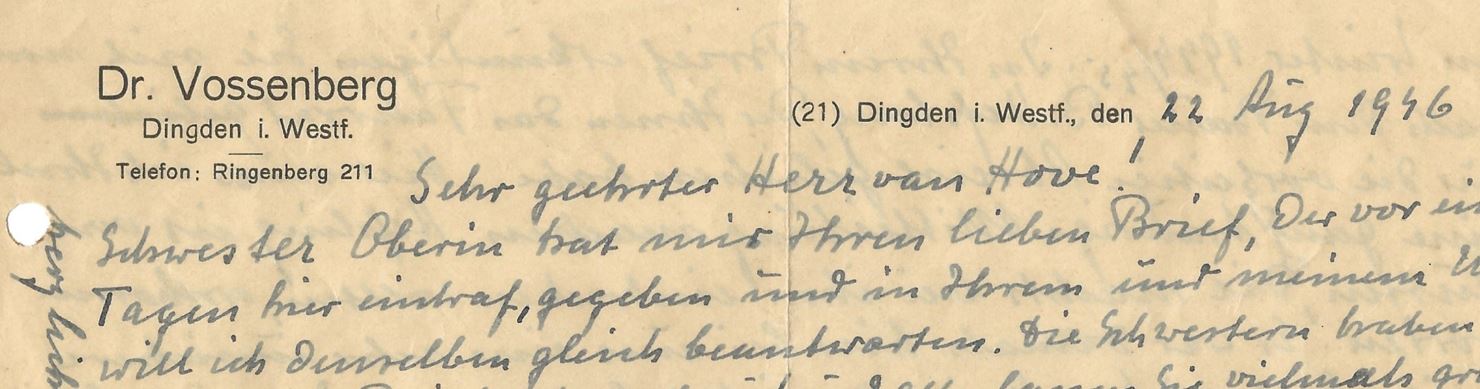 Dr. Vossenberg
Dingden i. Westf.
Telefon: Ringenberg 211
(21) Dingden i. Westf., den 22 Aug 1946
Sehr geehrter Herr van Hove!
Schwester Oberin hat mir Ihren lieben Brief, der vor
Tagen hier eintraf, gegeben und in Ihrem und meinem
will ich denselben gleich beantworten. Die Schwestern haben
Sie vielmals